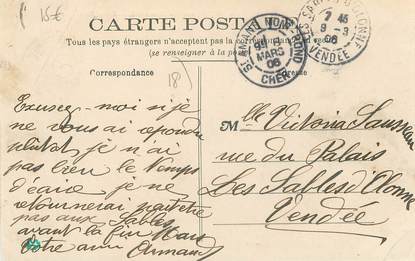 15€
CARTE POSTALE
Tous les pays étrangers n'acceptent pas la correspondance
(se renseigner à la poste
Correspondance
Adresse
18
ST AMAND MONT-ROND
MARS
06
CHER
7 45
9 -3
06
VENDÉE
Excusez-moi si je
ne vous ai repondu
plutot je n'ai
pas bien le temps
d'ecrire je ne
retournerai peut etre
pas aux Sables
avant la fin Mars
Votre ami Armand
Mlle Victoria
rue du Palais
Les Sables d'Olonne
Vendée